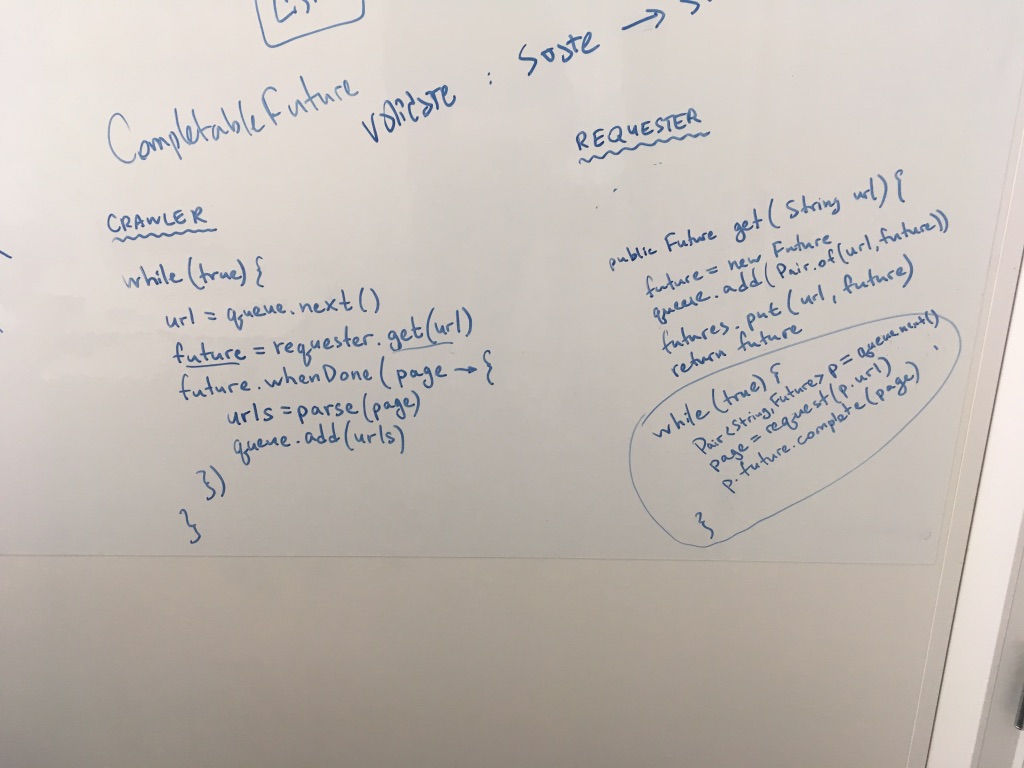 CompletableFuture
validate : State →
CRAWLER
while(true) {
url = queue.next()
future = requester.get(url)
future.whenDone(page → {
urls = parse(page)
queue.add(urls)
})
}
REQUESTER
public Future get( String url) {
future = new Future
queue.add(Pair.of(url, future))
futures.put(url, future)
return future
while(true) {
Pair<String, Future> p = queue.next()
page = request(p.url)
p.future.complete(page)
}